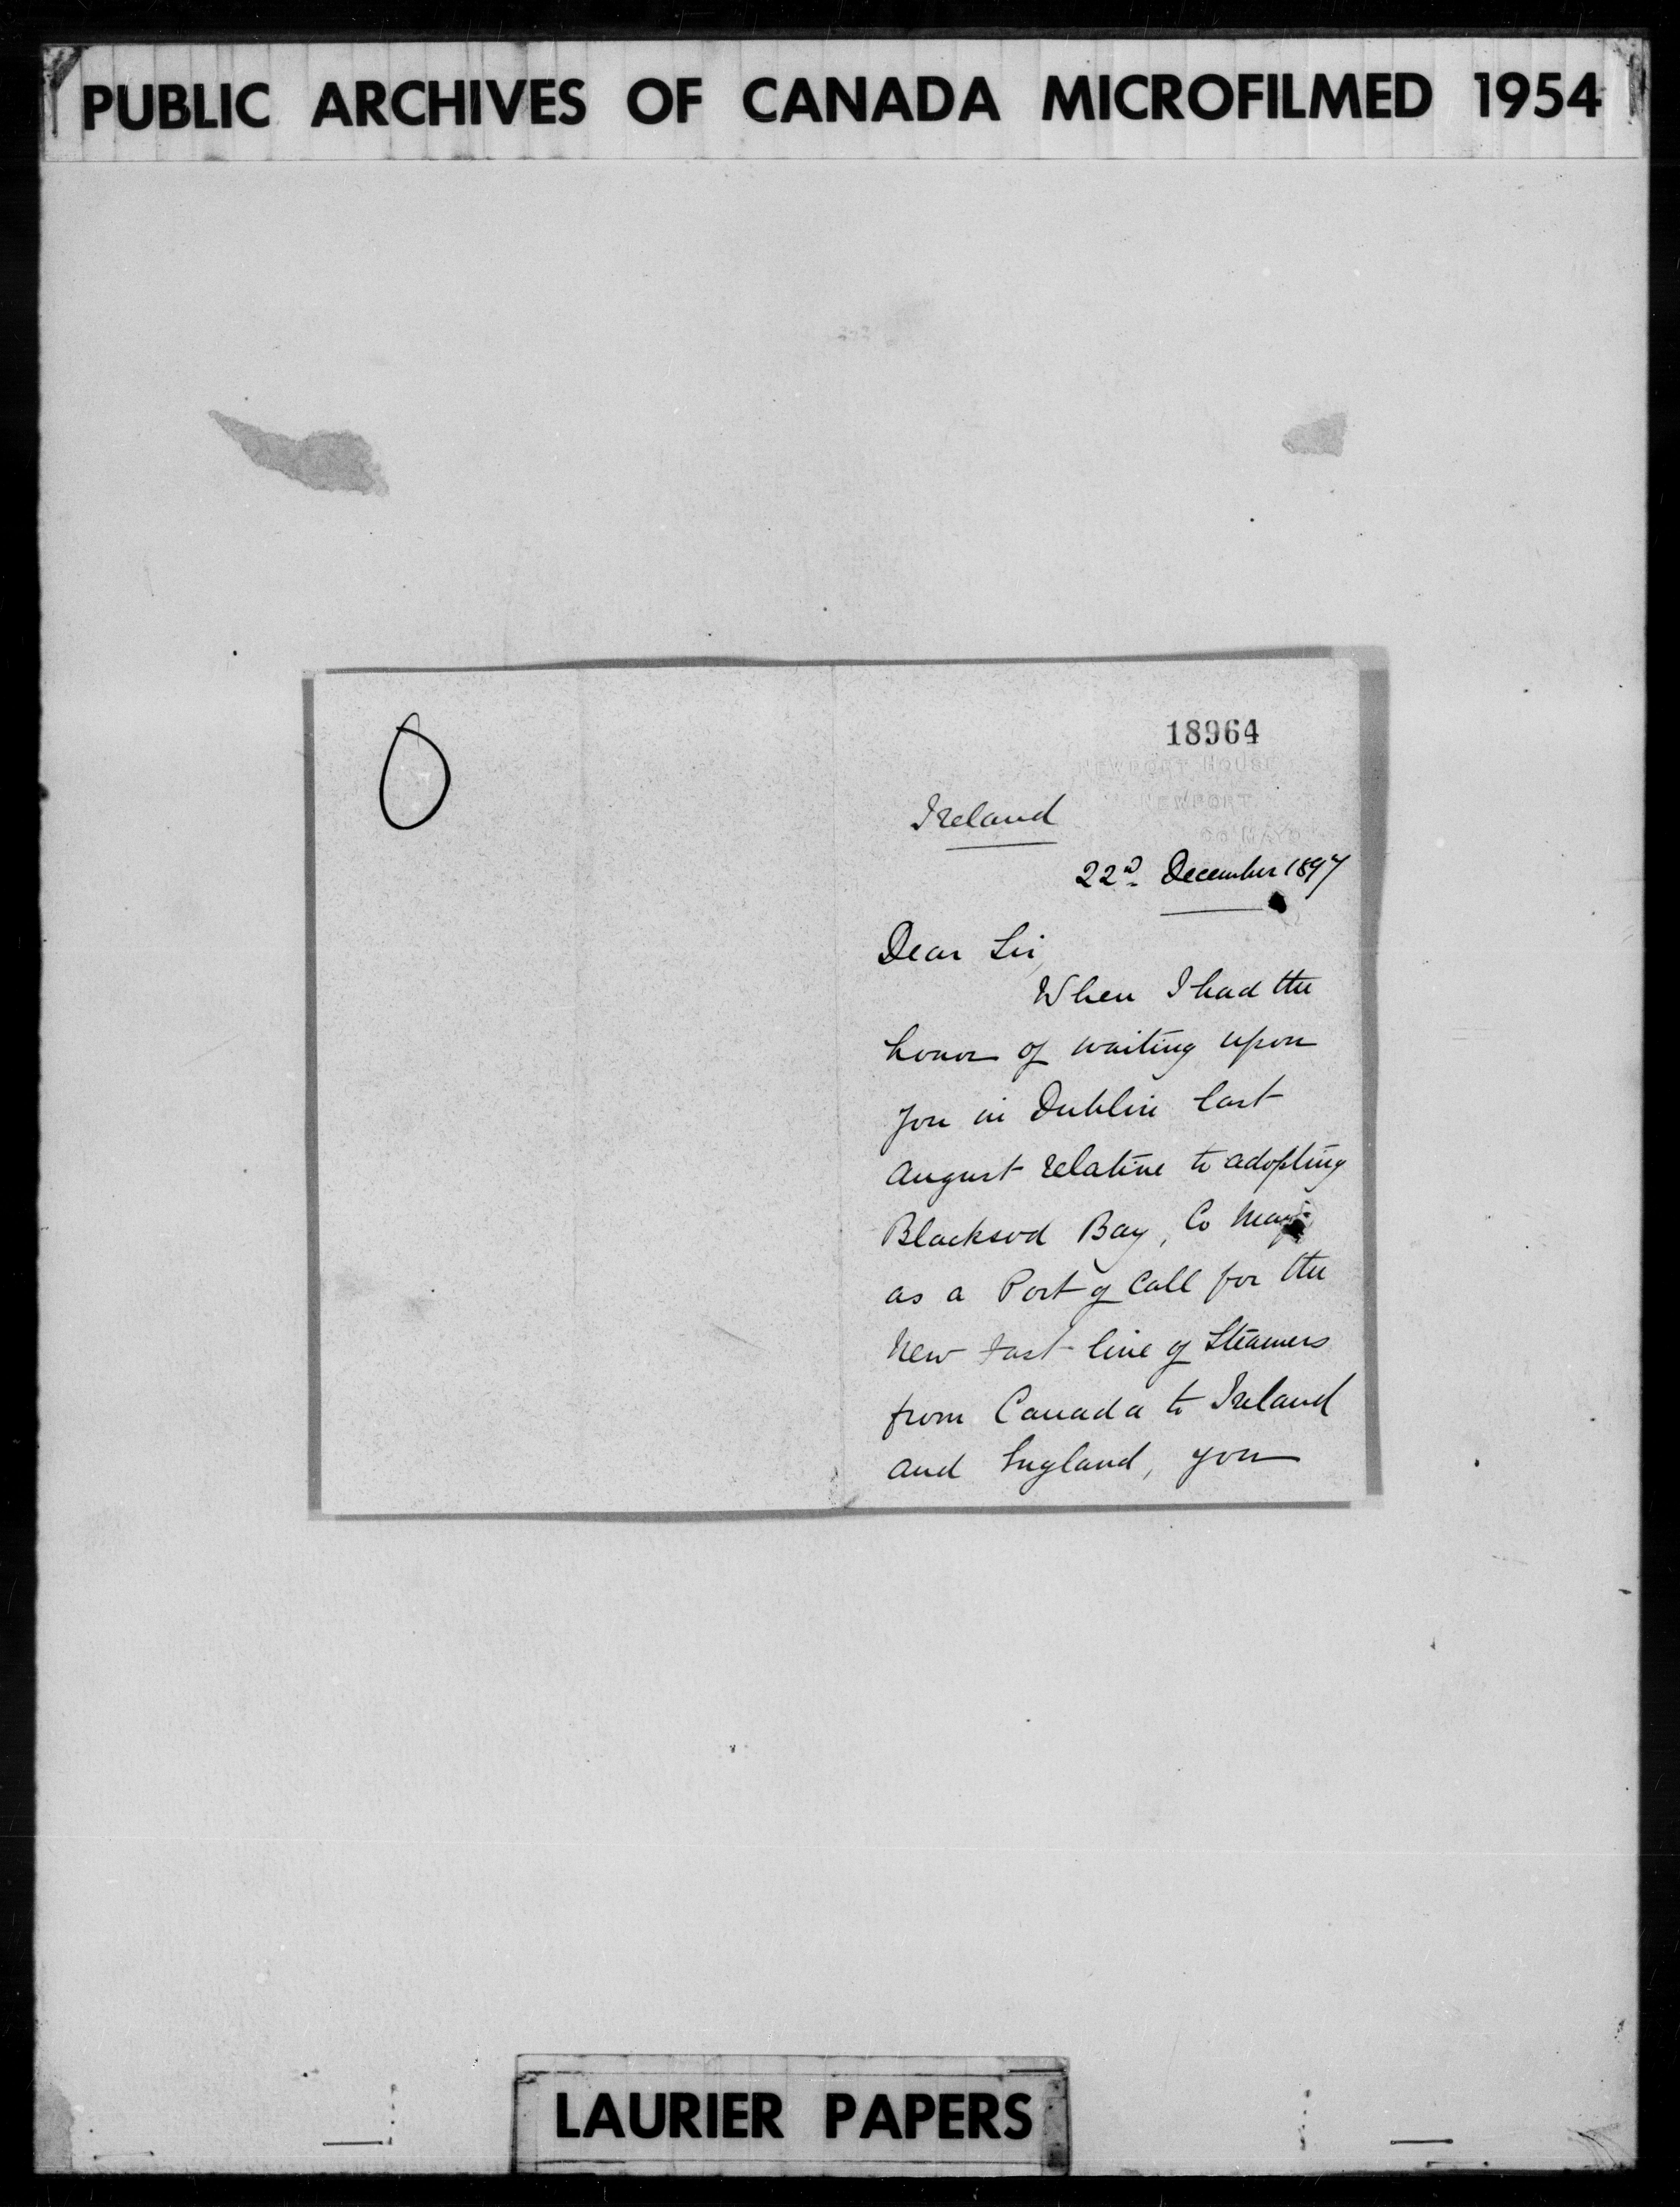 PUBLIC ARCHIVES OF CANADA MICROFILMED 1954
18964
NEWPORT HOUSE
NEWPORT
CO MAYO
Ireland
22nd December 1897
Dear Sir,
When I had the
honor of waiting upon
you in Dublin last
August relative to adopting
Blacksod Bay, Co Mayo
as a Port of Call for the
New fast line of Steamers
from Canada to Ireland
and England, you
LAURIER PAPERS